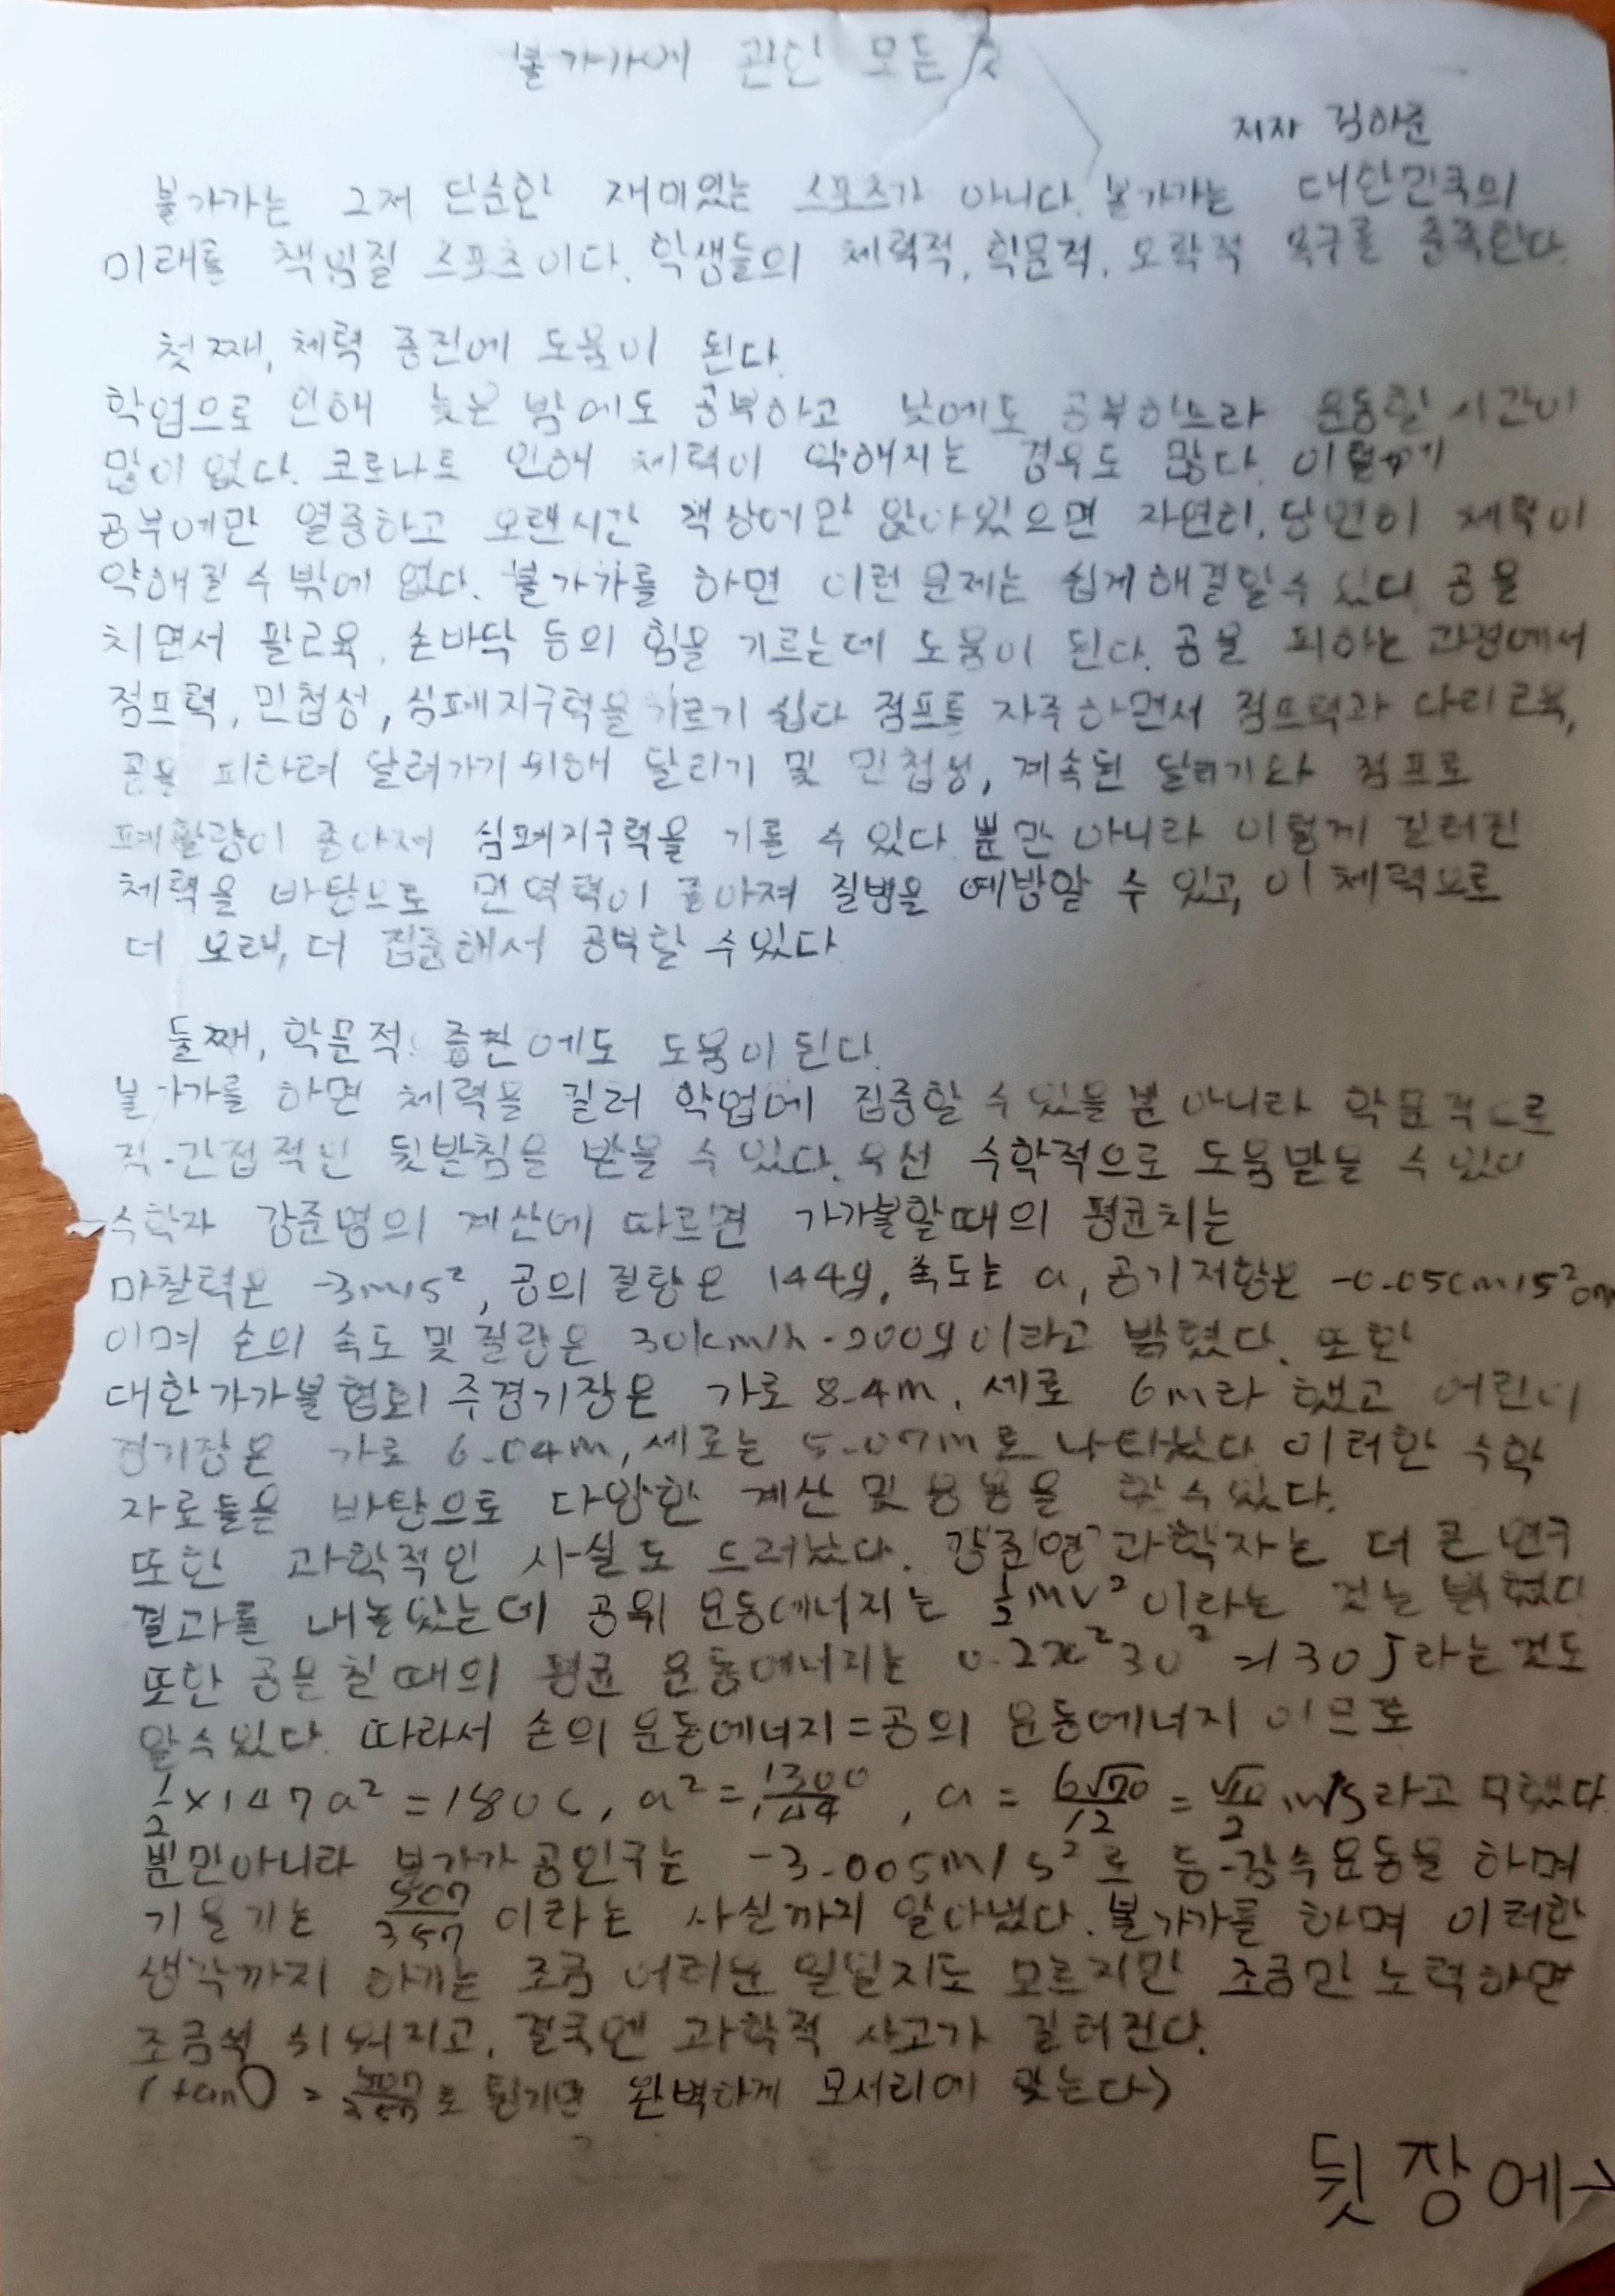 볼가가에 관한 모든 것
저자 김하준
볼가가는 그저 단순한 재미있는 스포츠가 아니다. 볼가가는 대한민국의
미래를 책임질 스포츠이다. 학생들의 체력적, 학문적, 오락적 욕구를 충족한다.
첫째, 체력 증진에 도움이 된다.
학업으로 인해 늦은 밤에도 공부하고 낮에도 공부하느라 운동할 시간이
많이 없다. 코로나로 인해 체력이 약해지는 경우도 많다. 이렇게
공부에만 열중하고 오랜시간 책상에만 앉아있으면 자연히, 당연히 체력이
약해질 수 밖에 없다. 볼가가를 하면 이런 문제는 쉽게 해결할 수 있다 공을
치면서 팔근육, 손바닥 등의 힘을 기르는데 도움이 된다. 공을 피하는 과정에서
점프력, 민첩성, 심폐지구력을 기르기 쉽다 점프를 자주하면서 점프력과 다리근육,
공을 피하려 달려가기 위해 달리기 및 민첩성, 계속된 달리기와 점프로
폐활량이 좋아져 심폐지구력을 기를 수 있다 뿐만 아니라 이렇게 길러진
체력을 바탕으로 면역력이 좋아져 질병을 예방할 수 있고, 이 체력으로
더 오래, 더 집중해서 공부할 수 있다
둘째, 학문적 증진에도 도움이 된다.
볼가가를 하면 체력을 길러 학업에 집중할 수 있을 뿐 아니라 학문적으로
직·간접적인 뒷받침을 받을 수 있다. 우선 수학적으로 도움받을 수 있다
수학자 강준영의 계산에 따르면 가가볼할때의 평균치는
마찰력은 -3m/s², 공의 질량은 144g, 속도는 a, 공기저항은 -0.05cm/s²
이며 손의 속도 및 질량은 30km/h·200g이라고 밝혔다. 또한
대한가가볼협회 주경기장은 가로 8.4m, 세로 6m라 했고 어린이
경기장은 가로 6.04m, 세로는 5.07m로 나타났다 이러한 수학
자료들을 바탕으로 다양한 계산 및 응용을 할 수 있다.
또한 과학적인 사실도 드러났다. 강준영 과학자는 더 큰 연구
결과를 내놓았는데 공의 운동에너지는 ½mv²이라는 것을 밝혔다
또한 공을 칠때의 평균 운동에너지는 30J라는 것도
알수있다. 따라서 손의 운동에너지=공의 운동에너지 이므로
½×147a²=1800, a²= , a = 6√70/12 = √70/2 m/s라고 구했다
뿐만아니라 볼가가 공인구는 -3.005m/s²로 등-감속운동을 하며
기울기는 507/357 이라는 사실까지 알아냈다. 볼가가를 하며 이러한
생각까지 하기는 조금 어려운 일일지도 모르지만 조금만 노력하면
조금씩 쉬워지고, 결국엔 과학적 사고가 길러진다.
(tanθ = 507/357로 튕기면 완벽하게 모서리에 맞는다)
뒷장에→